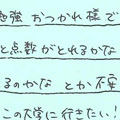 強 おつかれ様で
と点数がとれるかな
るのかな とか 不安
この大学に行きたい!